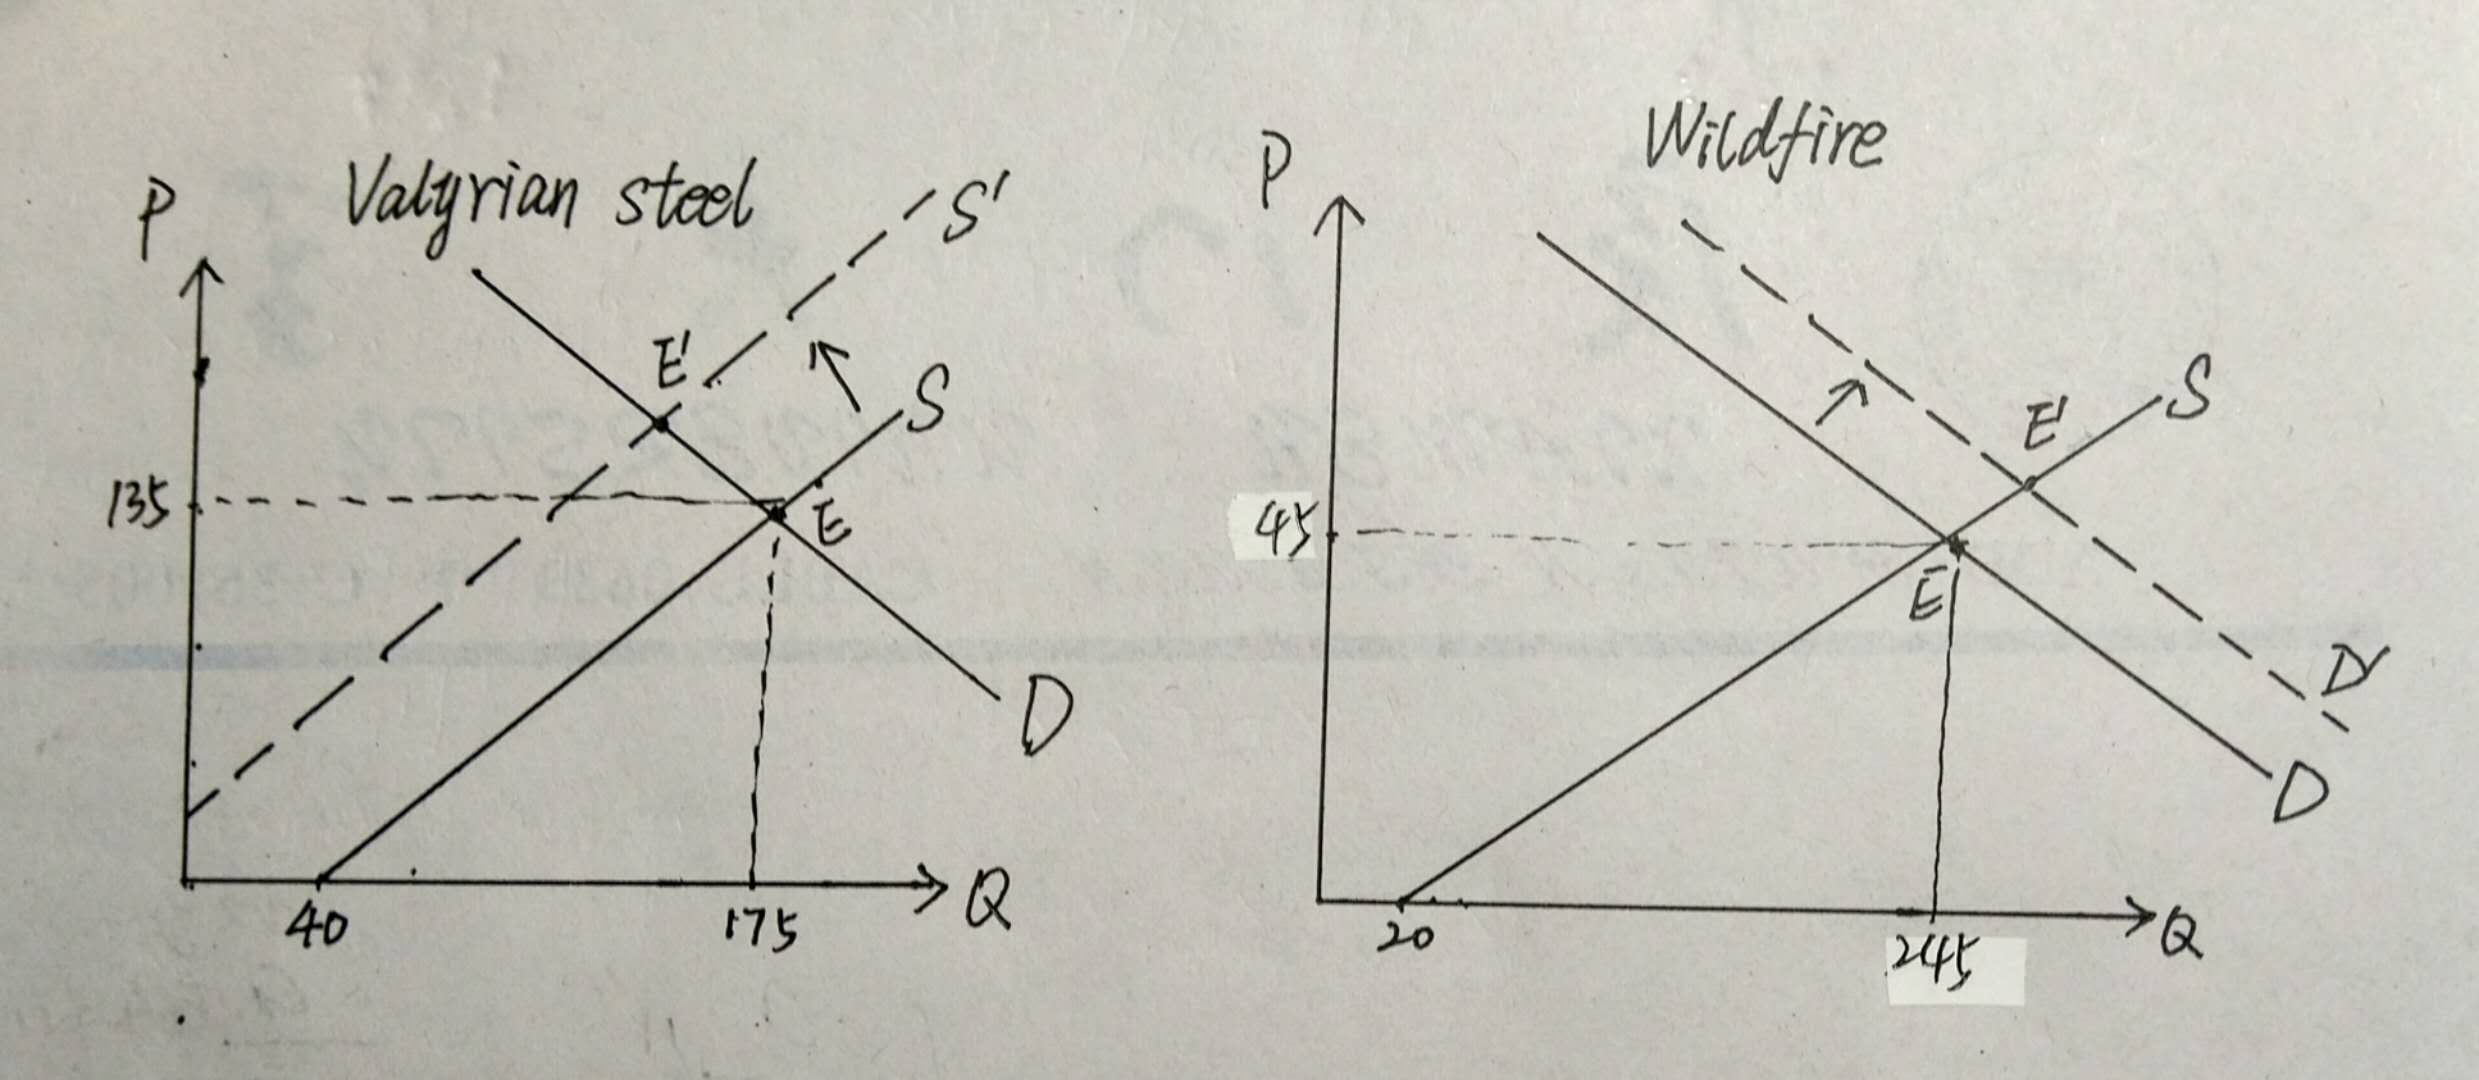 Valyrian steel
P
S'
E'
S
135
E
D
40
175
Q
Wildfire
P
S
E'
45
E
D'
D
20
245
Q